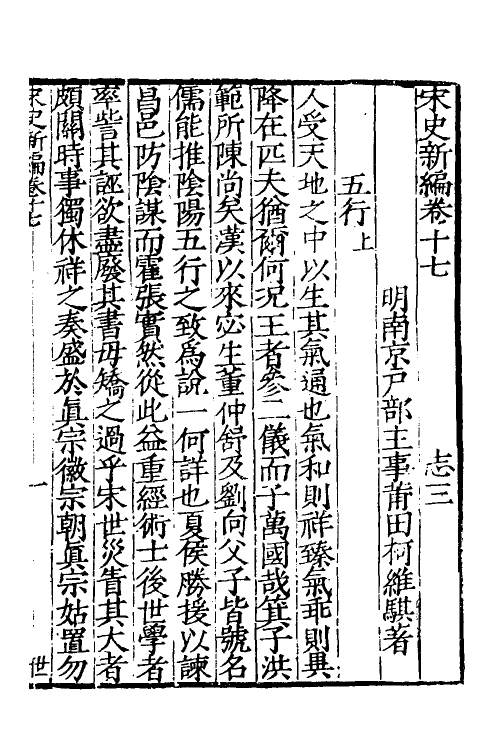 宋史新編卷十七　志三
明南京戸部主事莆田柯維騏著
五行上
人受天地之中以生其氣通也氣和則祥臻氣乖則異
降在匹夫猶爾何況王者參二儀而子萬國哉箕子洪
範所陳尚矣漢以來宓生董仲舒及劉向父子皆號名
儒能推陰陽五行之致為說一何詳也夏侯勝援以諫
昌邑防陰謀而霍張實然從此益重經術士後世學者
率訾其誣欲盡廢其書毋矯之過乎宋世災眚其大者
頗關時事獨休祥之奏盛於眞宗徽宗朝眞宗姑置勿
宋史新編卷十七　一　世